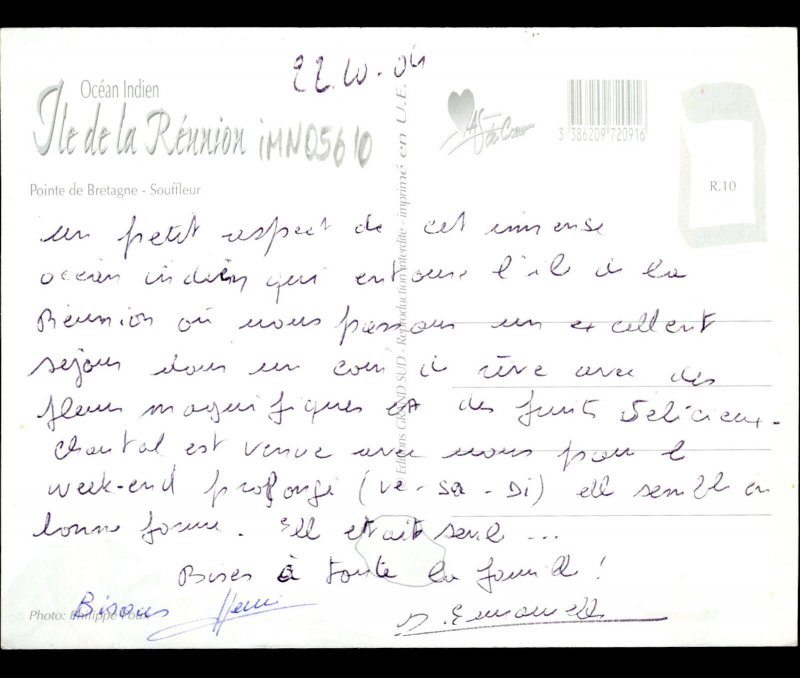 22.10.04
Océan Indien
Île de la Réunion
iMN05610
As de Cœur
3 386209 720916
Pointe de Bretagne - Souffleur
R.10
Editions GRAND SUD - Reproduction interdite - imprimé en U.E.
un petit aspect de cet immense
océan indien qui entoure l'île à la
Réunion où nous passons un excellent
séjour dans un coin de rêve avec des
fleurs magnifiques et des fruits délicieux.
Chantal est venue avec nous pour le
week-end prolongé (Ve - Sa - Di) elle semble en
bonne forme. Elle était seule ...
Bises à toute la famille !
Bisous Henri
Photo: Philippe